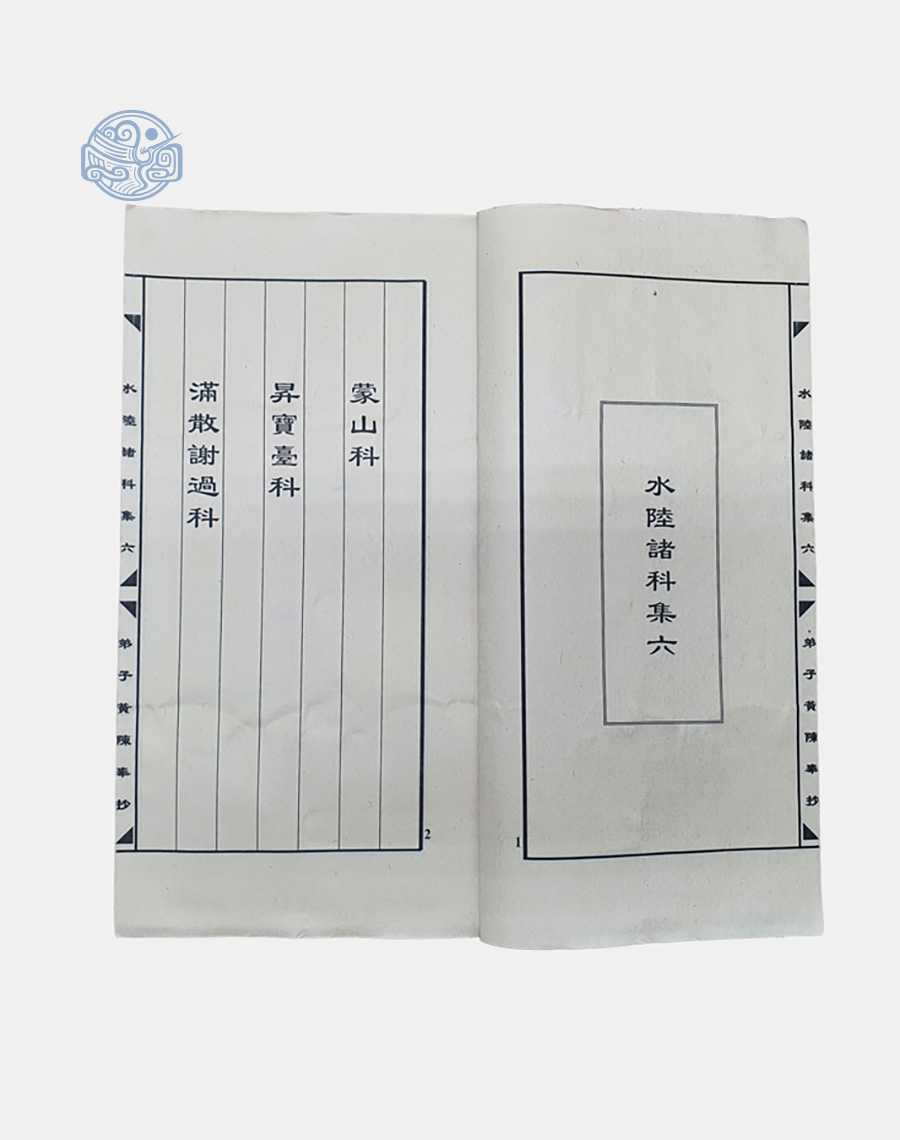 水陸諸科集六
水陸諸科集六
弟子黃陳奉抄
1
蒙山科
昇寶臺科
滿散謝過科
水陸諸科集六
弟子黃陳奉抄
2